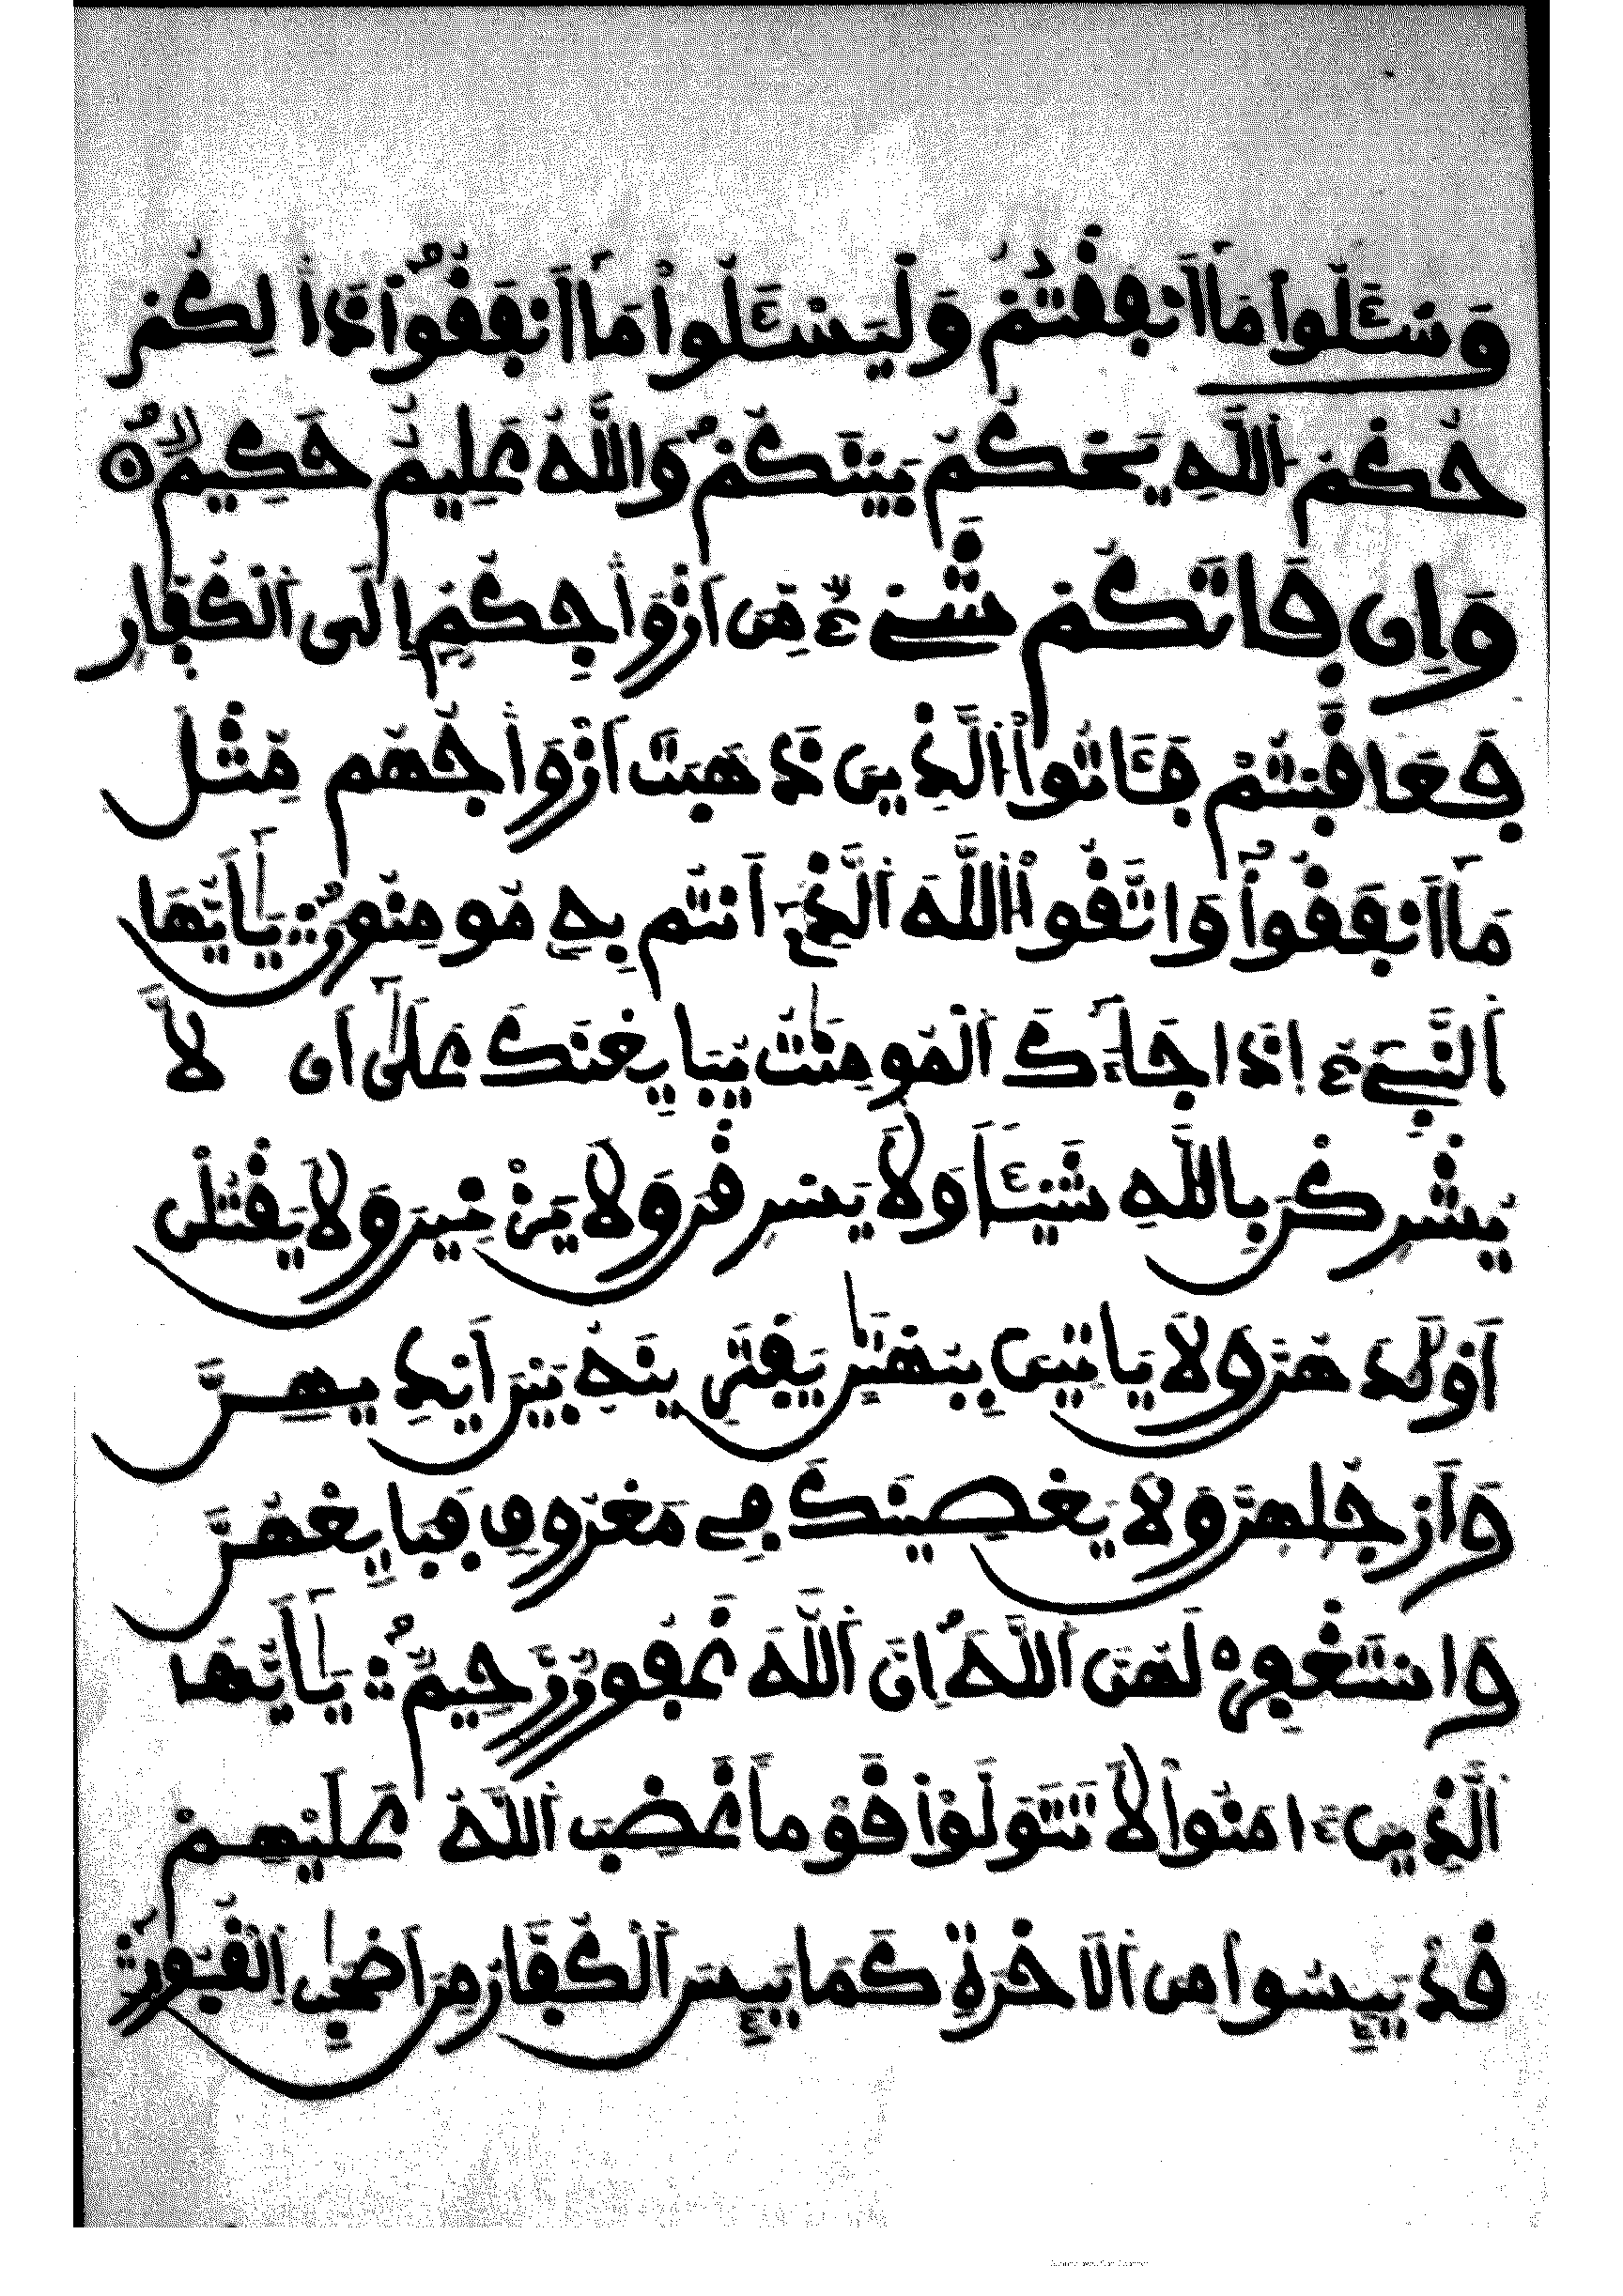 وَسْـَٔلُوا مَا أَنفَقْتُمْ وَلْيَسْـَٔلُوا مَا أَنفَقُوا ذَٰلِكُمْ
حُكْمُ اللَّهِ يَحْكُمُ بَيْنَكُمْ وَاللَّهُ عَلِيمٌ حَكِيمٌ
وَإِن فَاتَكُمْ شَيْءٌ مِّنْ أَزْوَاجِكُمْ إِلَى الْكُفَّارِ
فَعَاقَبْتُمْ فَـَٔاتُوا الَّذِينَ ذَهَبَتْ أَزْوَاجُهُم مِّثْلَ
مَا أَنفَقُوا وَاتَّقُوا اللَّهَ الَّذِي أَنتُم بِهِ مُومِنُونَ يَـٰأَيُّهَا
النَّبِيءُ إِذَا جَاءَكَ الْمُومِنَـٰتُ يُبَايِعْنَكَ عَلَىٰ أَن لَّا
يُشْرِكْنَ بِاللَّهِ شَيْـًٔا وَلَا يَسْرِقْنَ وَلَا يَزْنِينَ وَلَا يَقْتُلْنَ
أَوْلَـٰدَهُنَّ وَلَا يَاتِينَ بِبُهْتَـٰنٍ يَفْتَرِينَهُ بَيْنَ أَيْدِيهِنَّ
وَأَرْجُلِهِنَّ وَلَا يَعْصِينَكَ فِي مَعْرُوفٍ فَبَايِعْهُنَّ
وَاسْتَغْفِرْ لَهُنَّ اللَّهَ إِنَّ اللَّهَ غَفُورٌ رَّحِيمٌ يَـٰأَيُّهَا
الَّذِينَ ءَامَنُوا لَا تَتَوَلَّوْا قَوْمًا غَضِبَ اللَّهُ عَلَيْهِمْ
قَدْ يَئِسُوا مِنَ الْأَخِرَةِ كَمَا يَئِسَ الْكُفَّارُ مِنْ أَصْحَـٰبِ الْقُبُورِ